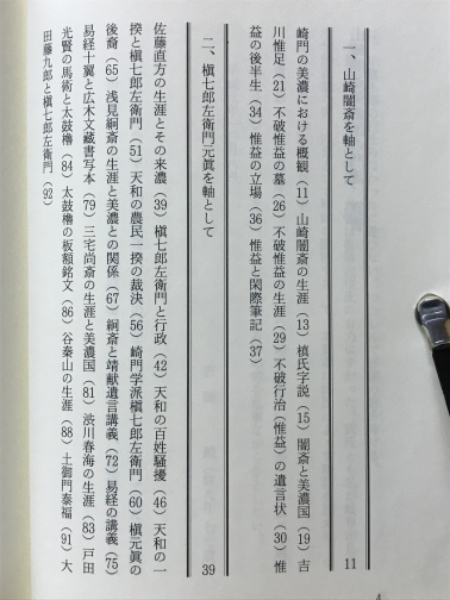 一、山崎闇斎を軸として 11
崎門の美濃における概観（11）山崎闇斎の生涯（13）槙氏字説（15）闇斎と美濃国（19）吉
川惟足（21）不破惟益の墓（26）不破惟益の生涯（29）不破行治（惟益）の遺言状（30）惟
益の後半生（34）惟益の立場（36）惟益と閑際筆記（37）
二、槇七郎左衛門元眞を軸として 39
佐藤直方の生涯とその来濃（39）槇七郎左衛門と行政（42）天和の百姓騒擾（46）天和の一
揆と槇七郎左衛門（51）天和の農民一揆の裁決（56）崎門学派槇七郎左衛門（60）槇元眞の
後裔（65）浅見絅斎の生涯と美濃との関係（67）絅斎と靖献遺言講義（72）易経の講義（75）
易経十翼と広木文蔵書写本（79）三宅尚斎の生涯と美濃国（81）渋川春海の生涯（83）戸田
光賢の馬術と太鼓櫓（84）太鼓櫓の板額銘文（86）谷秦山の生涯（88）土御門泰福（91）大
田藤九郎と槇七郎左衛門（92）